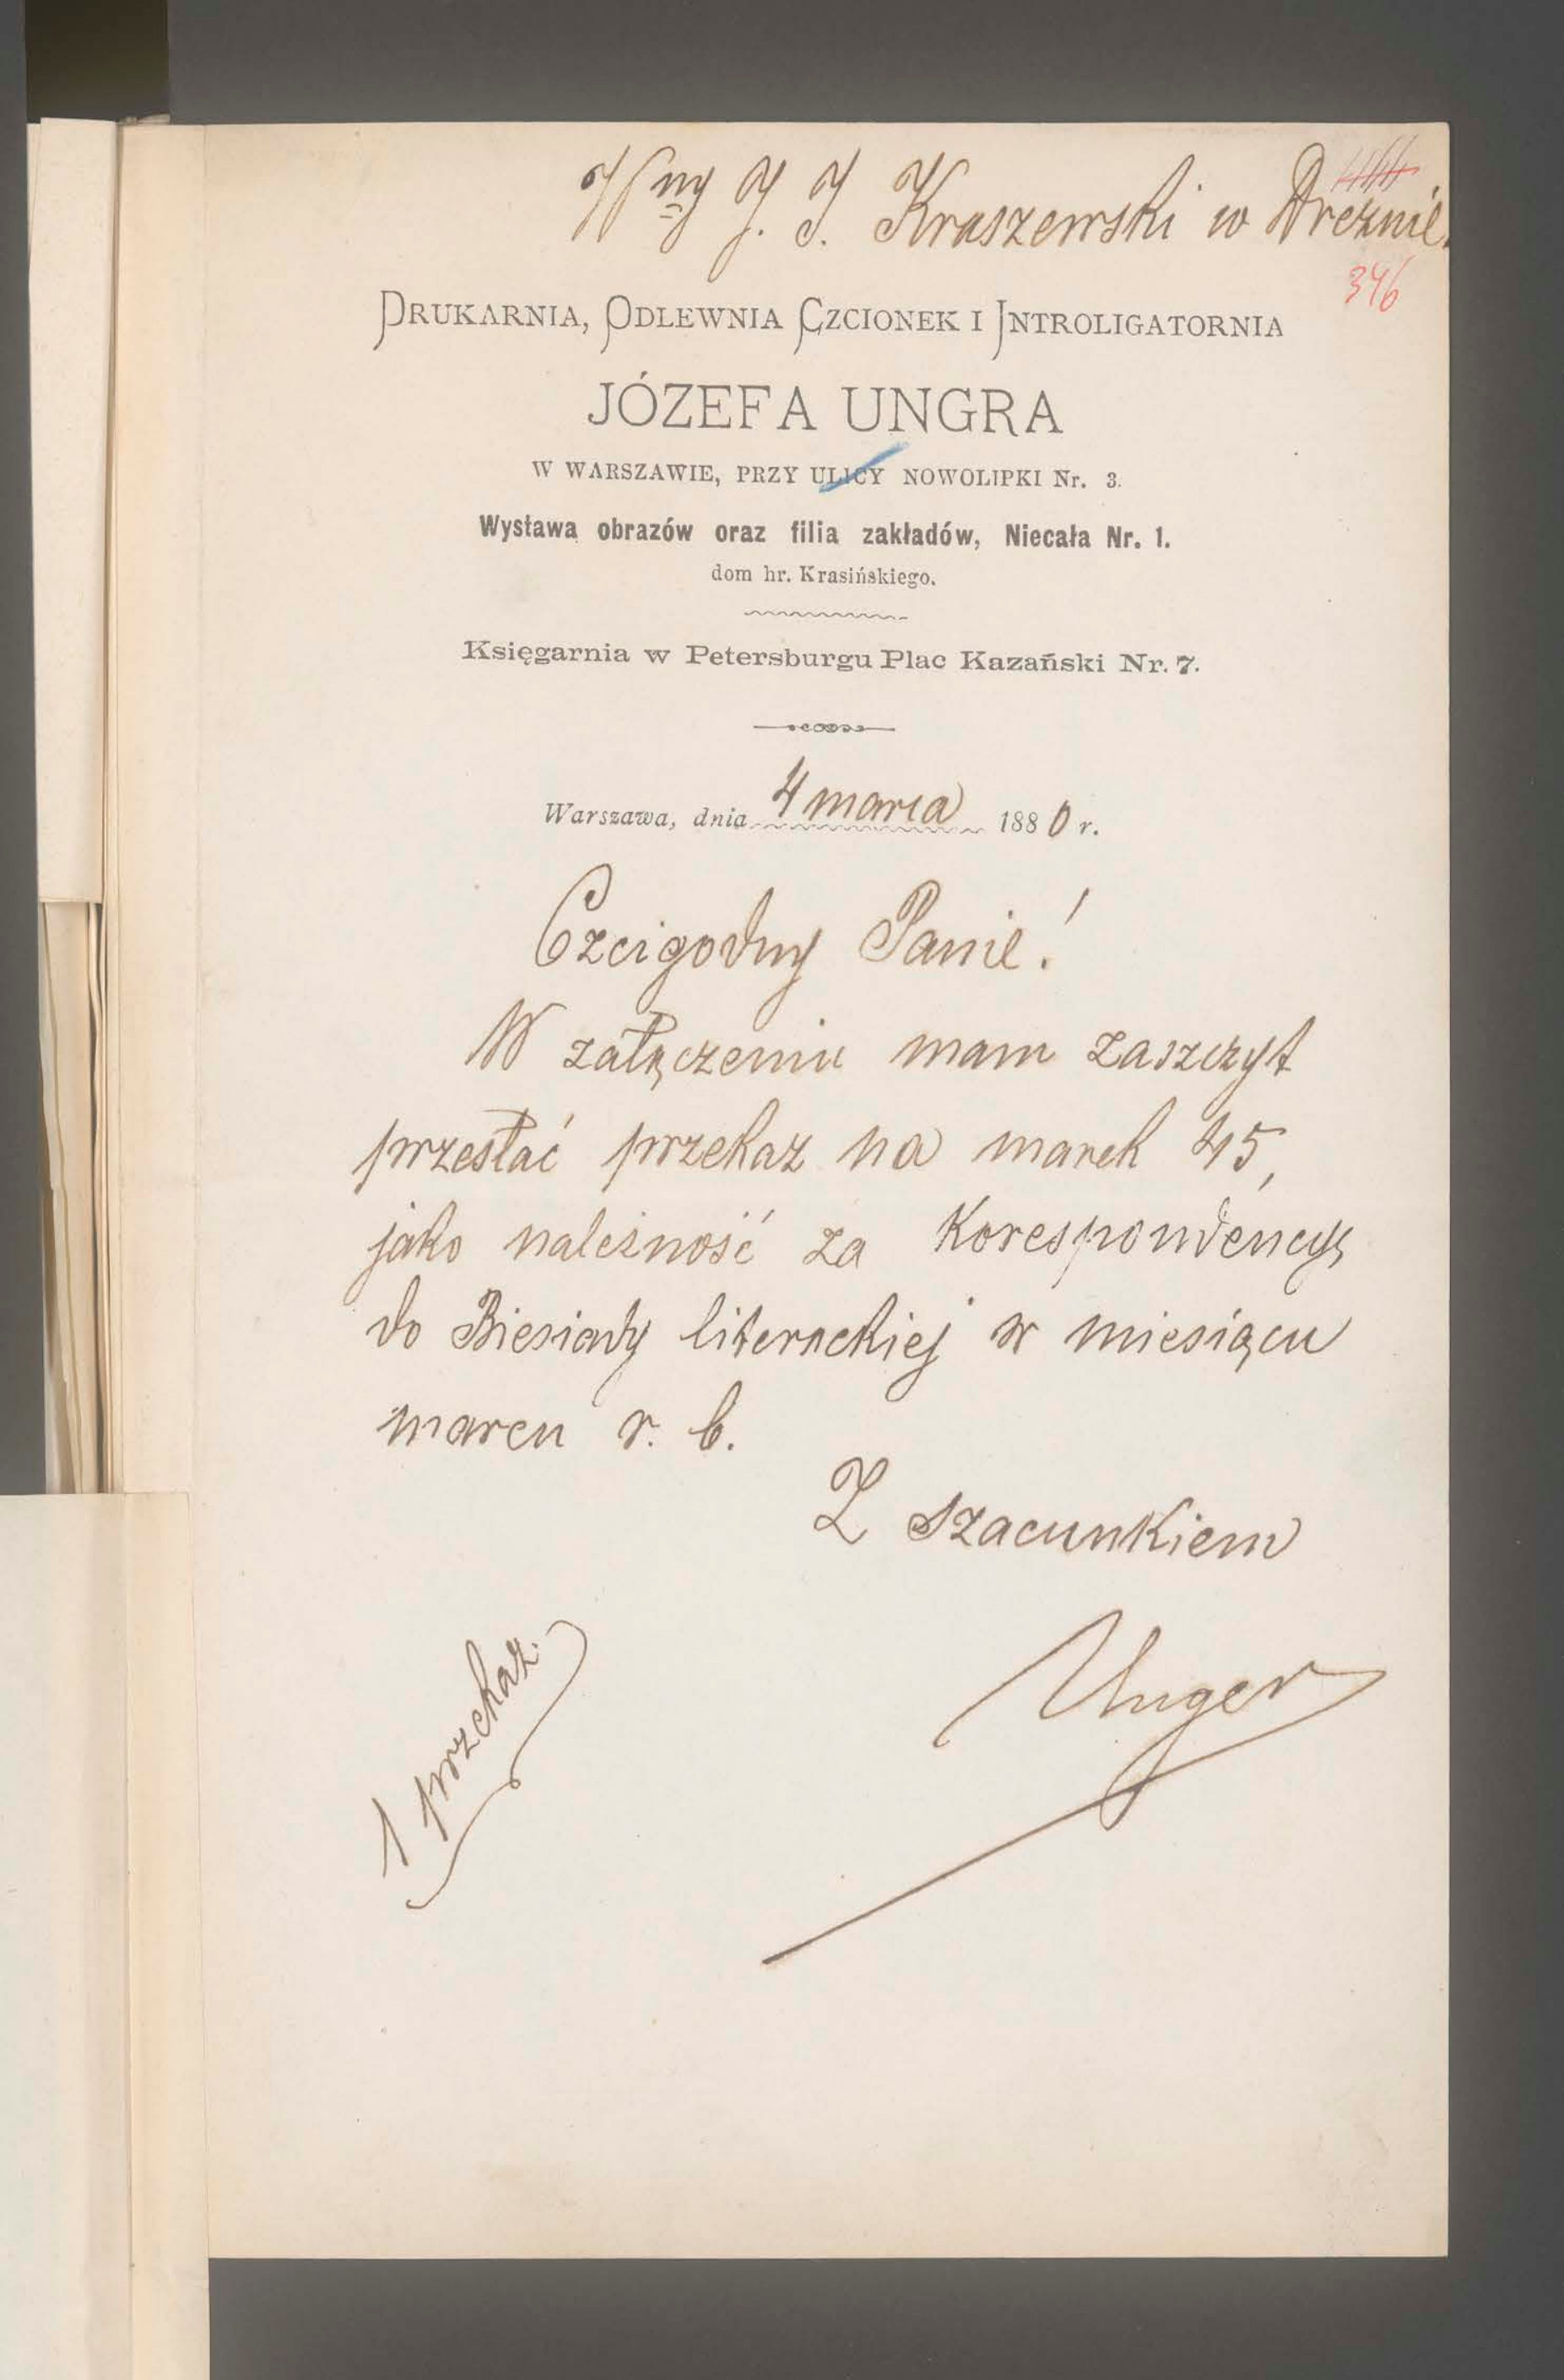 Wny J. I. Kraszewski w Dreznie.
346
DRUKARNIA, ODLEWNIA CZCIONEK I INTROLIGATORNIA
JÓZEFA UNGRA
W WARSZAWIE, PRZY ULICY NOWOLIPKI Nr. 3.
Wystawa obrazów oraz filia zakładów, Niecała Nr. 1.
dom hr. Krasińskiego.
Księgarnia w Petersburgu Plac Kazański Nr. 7.
Warszawa, dnia 4 marca 1880 r.
Czcigodny Panie!
W załączeniu mam zaszczyt
przesłać przekaz na marek 45,
jako należność za Korespondencyę
do Biesiady literackiej w miesiącu
marcu r. b.
Z szacunkiem
Unger
1 przekaz.